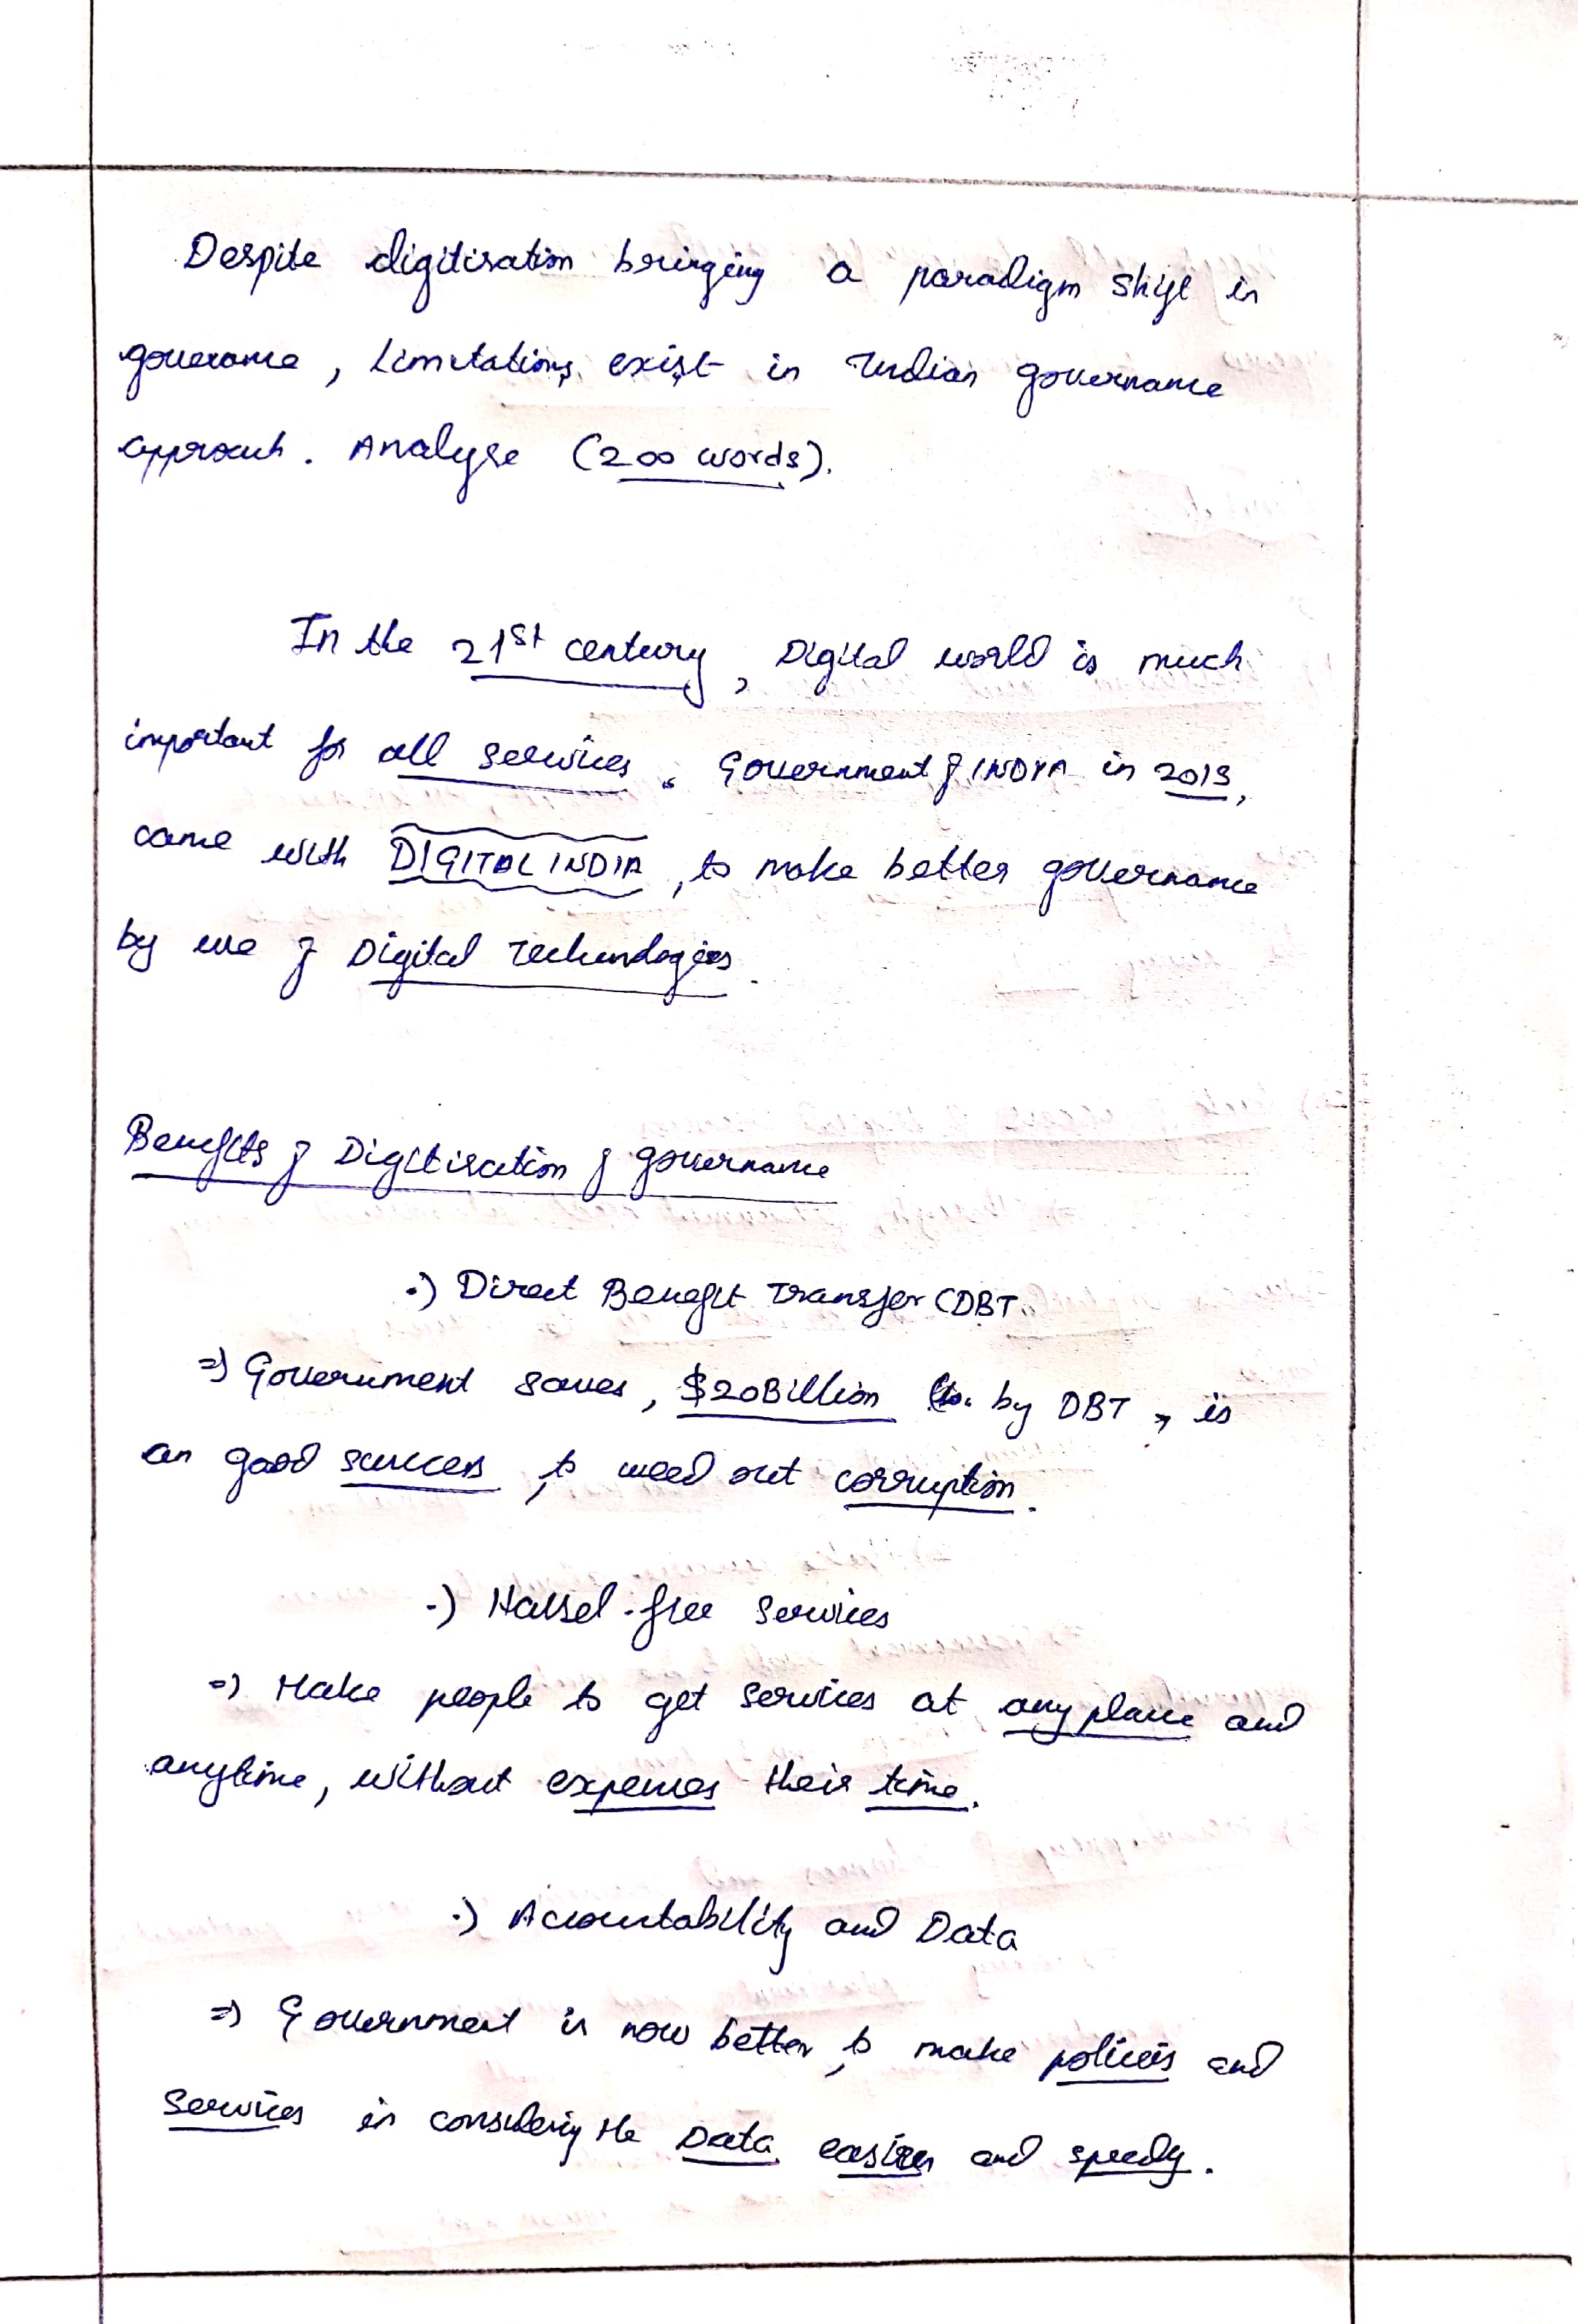 Despite digitisation bringing a paradigm shift in
goverance, Limitations exist in Indian governance
approach. Analyse (200 words).
In the 21st century, Digital world is much
important for all services. Government of INDIA in 2015,
came with DIGITAL INDIA, to make better governance
by use of Digital Technologies.
Benefits of Digitisation of governance
·) Direct Benefit Transfer (DBT
=) Government saves, $20Billion by DBT, is
an good success, to weed out corruption.
·) Hassel-free services
=) Make people to get services at any place and
anytime, without expenses their time.
·) Accountability and Data
=) Government is now better, to make policies and
services in considering the Data easier and speedy.